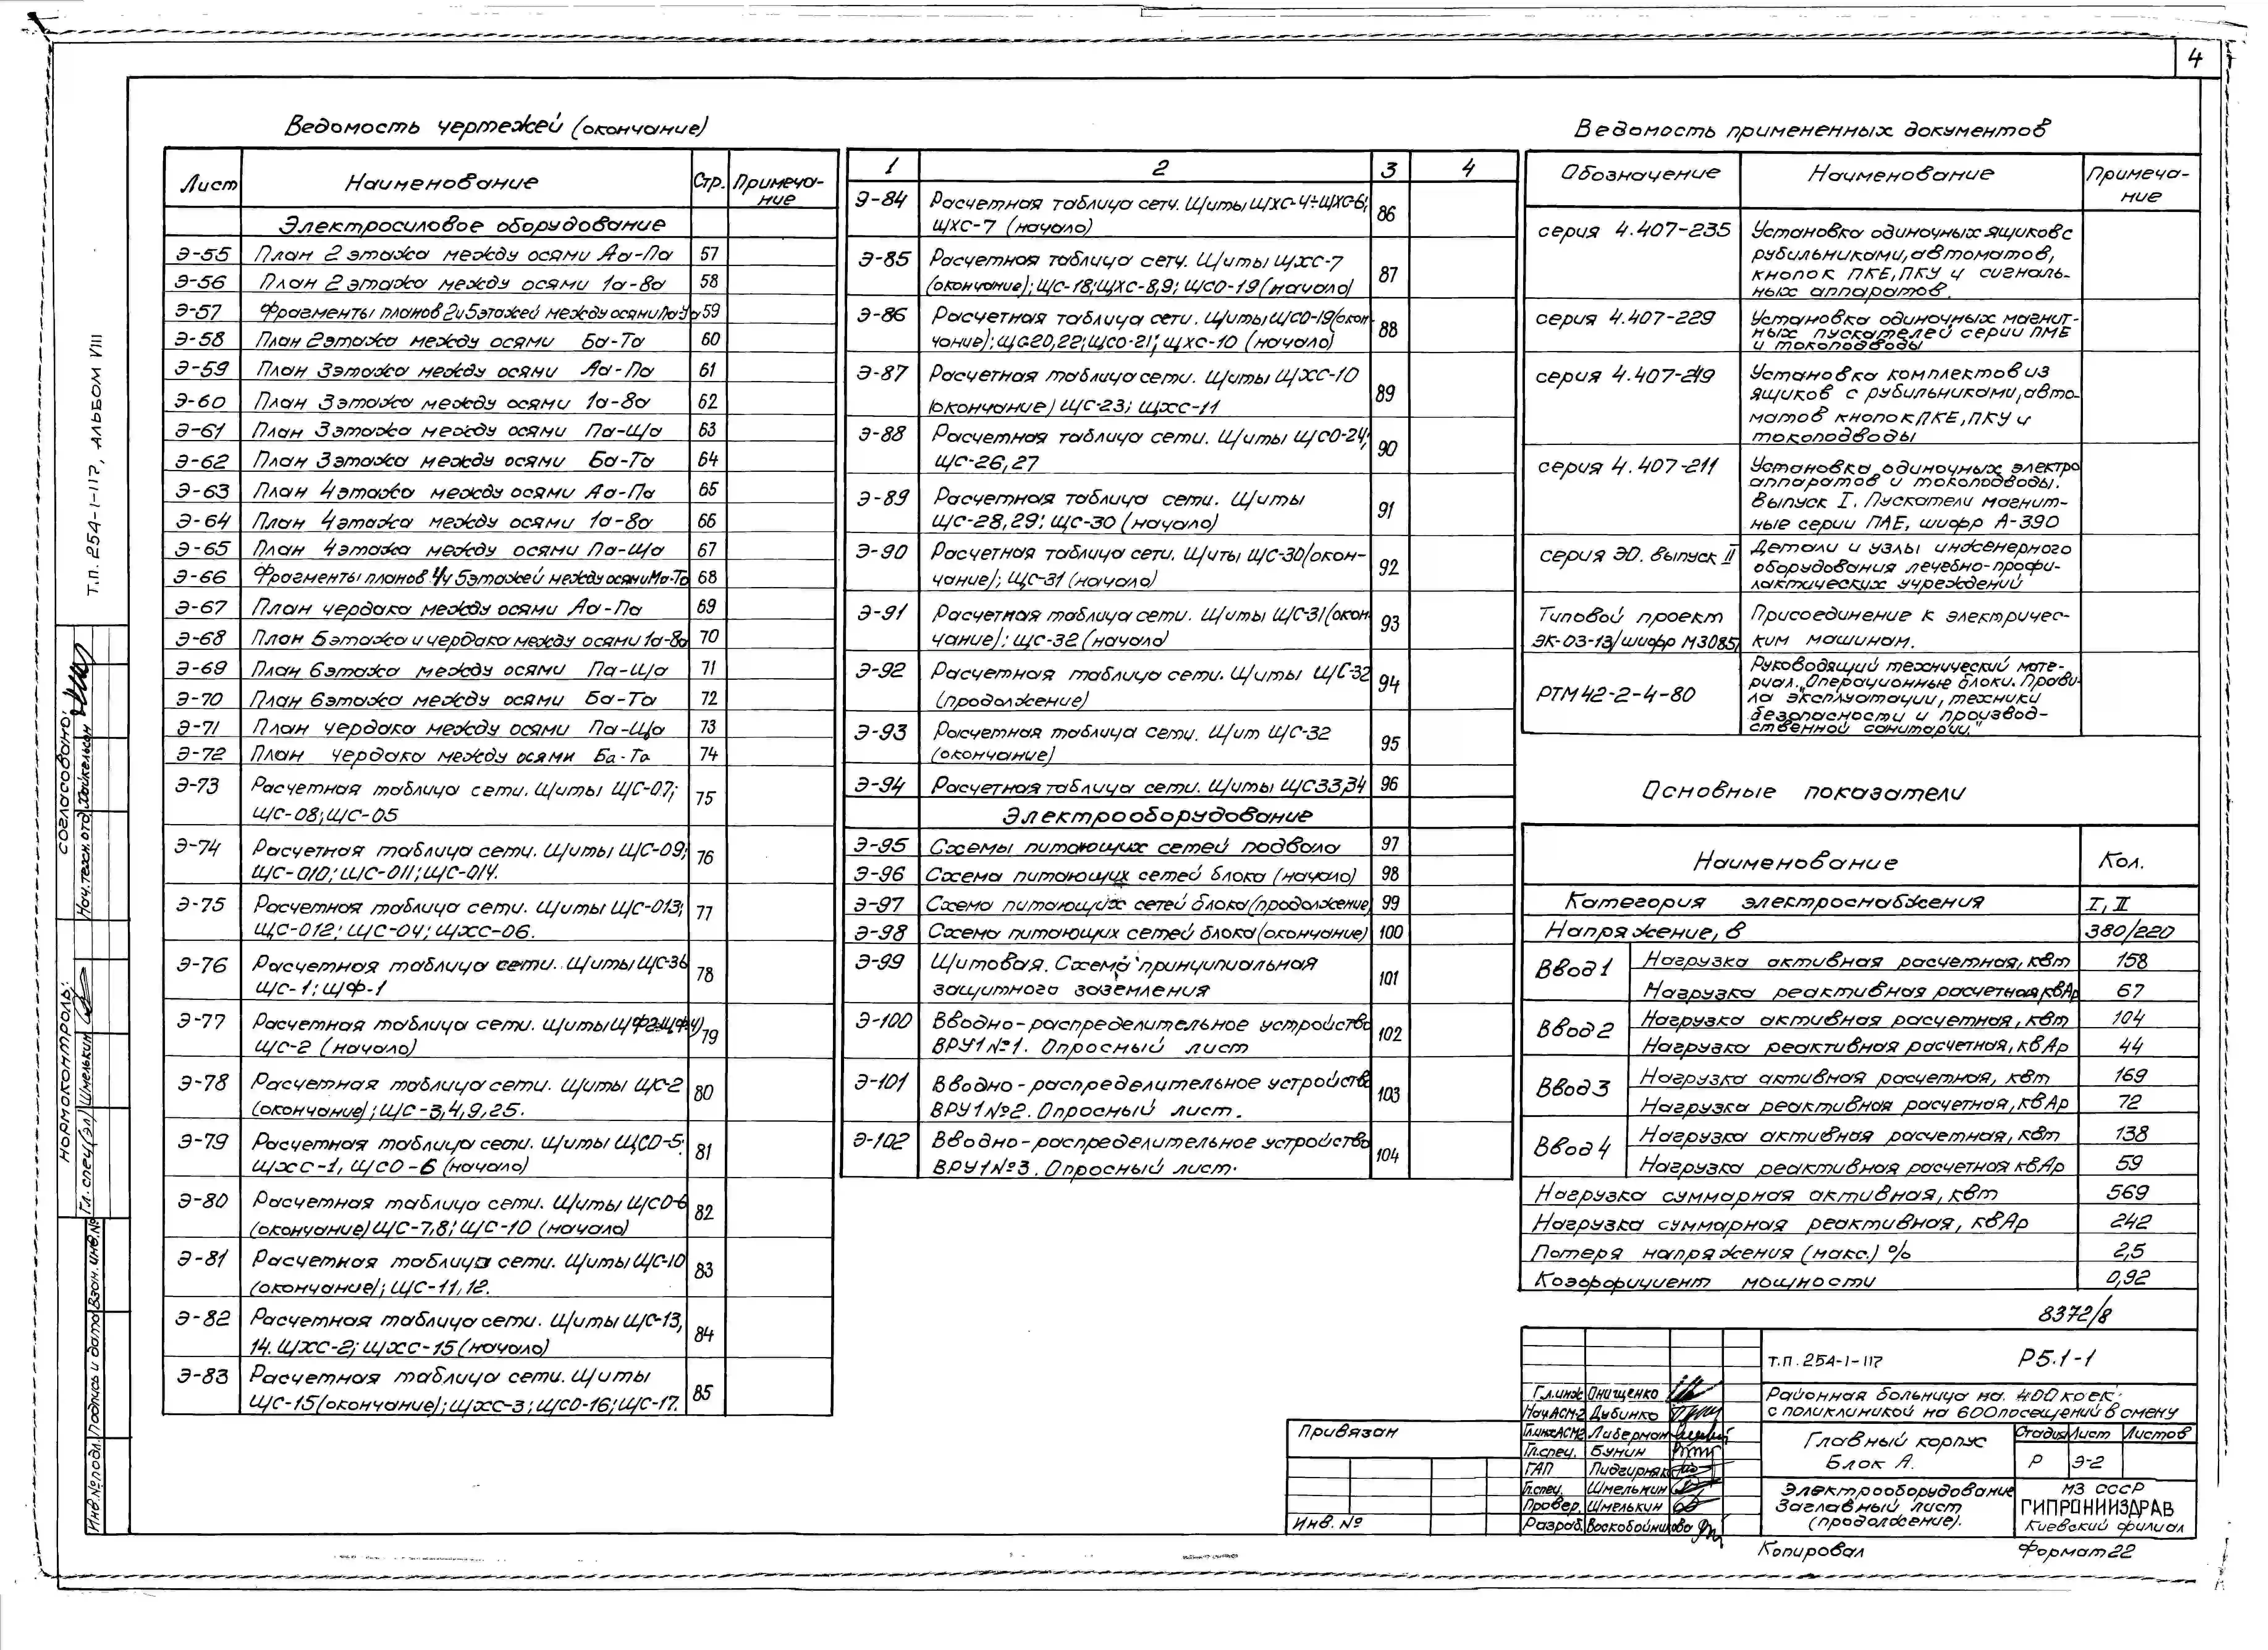 4
Т.П. 254-1-117, АЛЬБОМ VIII
Ведомость чертежей (окончание)
Лист Наименование Стр. Примеча-
ние
Электросиловое оборудование
Э-55 План 2 этажа между осями Аа-Па 57
Э-56 План 2 этажа между осями 1а-8а 58
Э-57 Фрагменты планов 2и5этажей между осями 59
Э-58 План 2этажа между осями Ба-Та 60
Э-59 План 3этажа между осями Аа-Па 61
Э-60 План 3этажа между осями 1а-8а 62
Э-61 План 3этажа между осями Па-Ща 63
Э-62 План 3этажа между осями Ба-Та 64
Э-63 План 4этажа между осями Аа-Па 65
Э-64 План 4этажа между осями 1а-8а 66
Э-65 План 4этажа между осями Па-Ща 67
Э-66 Фрагменты планов 4и5этажей между осями Ма-Та 68
Э-67 План чердака между осями Аа-Па 69
Э-68 План 5этажа и чердака между осями 1а-8а 70
Э-69 План 6этажа между осями Па-Ща 71
Э-70 План 6этажа между осями Ба-Та 72
Э-71 План чердака между осями Па-Ща 73
Э-72 План чердака между осями Ба-Та 74
Э-73 Расчетная таблица сети. Щиты ЩС-07; 75
ЩС-08; ЩС-05
Э-74 Расчетная таблица сети. Щиты ЩС-09; 76
ЩС-010; ЩС-011; ЩС-014.
Э-75 Расчетная таблица сети. Щиты ЩС-013; 77
ЩС-012; ЩС-04; ЩХС-06.
Э-76 Расчетная таблица сети. Щиты ЩС-36 78
ЩС-1; ЩФ-1
Э-77 Расчетная таблица сети. Щиты 79
ЩС-2 (начало)
Э-78 Расчетная таблица сети. Щиты ЩС-2 80
(окончание); ЩС-3,4,9,25.
Э-79 Расчетная таблица сети. Щиты ЩСО-5; 81
ЩХС-1, ЩСО-6 (начало)
Э-80 Расчетная таблица сети. Щиты ЩСО-6 82
(окончание) ЩС-7,8; ЩС-10 (начало)
Э-81 Расчетная таблица сети. Щиты ЩС-10 83
(окончание); ЩС-11,12.
Э-82 Расчетная таблица сети. Щиты ЩС-13, 84
14. ЩХС-2; ЩХС-15 (начало)
Э-83 Расчетная таблица сети. Щиты 85
ЩС-15(окончание); ЩХС-3; ЩСО-16; ЩС-17.
1 2 3 4
Э-84 Расчетная таблица сети. Щиты ЩХС-4÷ЩХС-6; 86
ЩХС-7 (начало)
Э-85 Расчетная таблица сети. Щиты ЩХС-7 87
(окончание); ЩС-18; ЩХС-8,9; ЩСО-19 (начало)
Э-86 Расчетная таблица сети. Щиты ЩСО-19(окон- 88
чание); ЩС20,22; ЩСО-21; ЩХС-10 (начало)
Э-87 Расчетная таблица сети. Щиты ЩХС-10 89
(окончание) ЩС-23; ЩХС-11
Э-88 Расчетная таблица сети. Щиты ЩСО-24; 90
ЩС-26,27
Э-89 Расчетная таблица сети. Щиты 91
ЩС-28,29; ЩС-30 (начало)
Э-90 Расчетная таблица сети. Щиты ЩС-30(окон- 92
чание); ЩС-31 (начало)
Э-91 Расчетная таблица сети. Щиты ЩС-31(окон- 93
чание); ЩС-32 (начало)
Э-92 Расчетная таблица сети. Щиты ЩС-32 94
(продолжение)
Э-93 Расчетная таблица сети. Щит ЩС-32 95
(окончание)
Э-94 Расчетная таблица сети. Щиты ЩС33,34 96
Электрооборудование
Э-95 Схемы питающих сетей подвала 97
Э-96 Схема питающих сетей блока (начало) 98
Э-97 Схема питающих сетей блока (продолжение) 99
Э-98 Схема питающих сетей блока (окончание) 100
Э-99 Щитовая. Схема принципиальная 101
защитного заземления
Э-100 Вводно-распределительное устройство 102
ВРУ1 №1. Опросный лист
Э-101 Вводно-распределительное устройство 103
ВРУ1 №2. Опросный лист.
Э-102 Вводно-распределительное устройство 104
ВРУ1 №3. Опросный лист.
Ведомость примененных документов
Обозначение Наименование Примеча-
ние
серия 4.407-235 Установка одиночных ящиков с
рубильниками, автоматов,
кнопок ПКЕ, ПКУ и сигналь-
ных аппаратов.
серия 4.407-229 Установка одиночных магнит-
ных пускателей серии ПМЕ
и токоподводы
серия 4.407-219 Установка комплектов из
ящиков с рубильниками, авто-
матов кнопок ПКЕ, ПКУ и
токоподводы
серия 4.407-211 Установка одиночных электро
аппаратов и токоподводы.
Выпуск I. Пускатели магнит-
ные серии ПАЕ, шифр А-390
серия ЭО. выпуск II Детали и узлы инженерного
оборудования лечебно-профи-
лактических учреждений
Типовой проект Присоединение к электричес-
ЭК-03-13/шифр М3085/ ким машинам.
РТМ 42-2-4-80 Руководящий технический мате-
риал. „Операционные блоки. Прави-
ла эксплуатации, техники
безопасности и производ-
ственной санитарии."
Основные показатели
Наименование Кол.
Категория электроснабжения I, II
Напряжение, в 380/220
Ввод 1 Нагрузка активная расчетная, квт 158
Нагрузка реактивная расчетная квАр 67
Ввод 2 Нагрузка активная расчетная, квт 104
Нагрузка реактивная расчетная, квАр 44
Ввод 3 Нагрузка активная расчетная, квт 169
Нагрузка реактивная расчетная, квАр 72
Ввод 4 Нагрузка активная расчетная, квт 138
Нагрузка реактивная расчетная квАр 59
Нагрузка суммарная активная, квт 569
Нагрузка суммарная реактивная, квАр 242
Потеря напряжения (макс.) % 2,5
Коэффициент мощности 0,92
8372/8
Т.П. 254-1-117 Р5.1-1
Районная больница на 400 коек
с поликлиникой на 600 посещений в смену
Главный корпус
Блок А.
Стадия Лист Листов
Р Э-2
Электрооборудование
Заглавный лист
(продолжение).
МЗ СССР
ГИПРОНИИЗДРАВ
Киевский филиал
Гл.инж Онищенко
Нач АСМ-2 Дубинко
Гл.инж АСМ2 Либерман
Гл.спец. Бунин
ГАП
Гл.спец. Шмелькин
Провер. Шмелькин
Разраб. Воскобойникова
Привязан
Инв. №
Копировал Формат 22
согласовано:
Нач.техн.отд. Хайкельсон
нормоконтроль:
Гл.спец(эл) Шмелькин
Инв.№подл. Подпись и дата Взам.инв.№